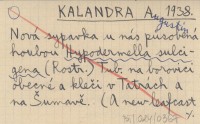 KALANDRA A. 1938.
Nová sypavka u nás působená
houbou Hypodermella sulci-
gena (Rostr.) Tub. na borovici
obecné a kleči v Tatrách a
na Šumavě. (A new leafcast